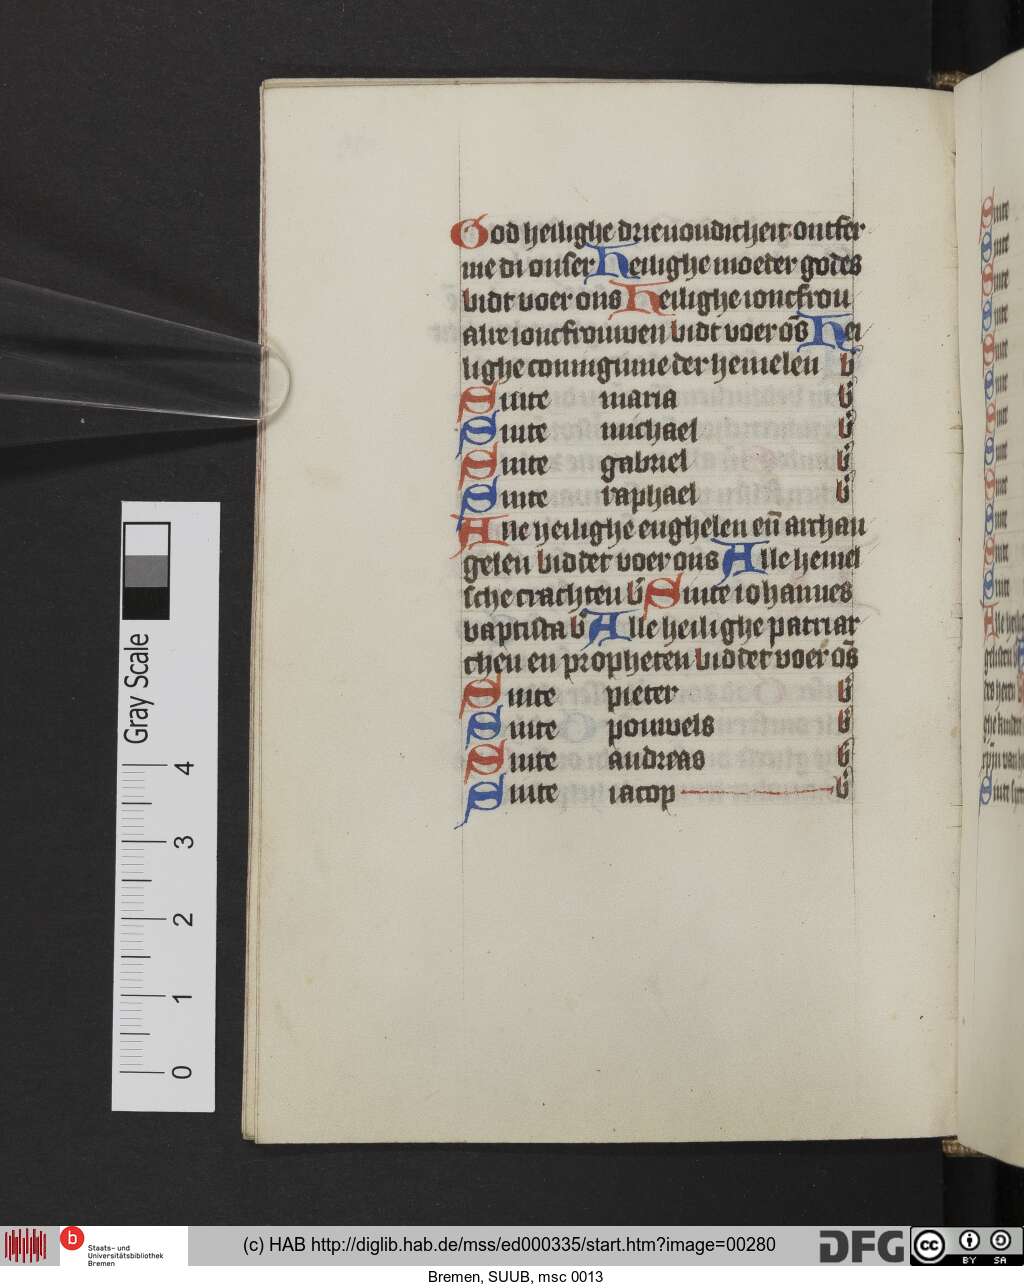 God heilighe drieuoudicheit ontfer
me di onser Heilighe moeder godes
bidt voer ons Heilighe ioncfrou
alre ioncfrouwen bidt voer os̄ Hei
lighe coninginne der hemelen b̉
Sinte maria b̉
Sinte michael b̉
Sinte gabriel b̉
Sinte raphael b̉
Alle heilighe enghelen en̄ archan
gelen biddet voer ons Alle hemel
sche crachten b̉ Sinte iohannes
baptista b̉ Alle heilighe patriar
chen en propheten biddet voer os̄
Sinte pieter b̉
Sinte pouwels b̉
Sinte andreas b̉
Sinte iacop b̉
Gray Scale
4
3
2
1
0
b
Staats- und
Universitätsbibliothek
Bremen
(c) HAB http://diglib.hab.de/mss/ed000335/start.htm?image=00280
DFG
cc
BY SA
Bremen, SUUB, msc 0013